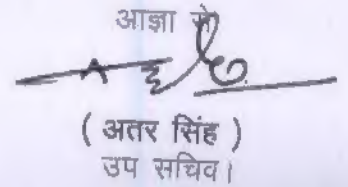 आज्ञा से
( अतर सिंह )
उप सचिव।